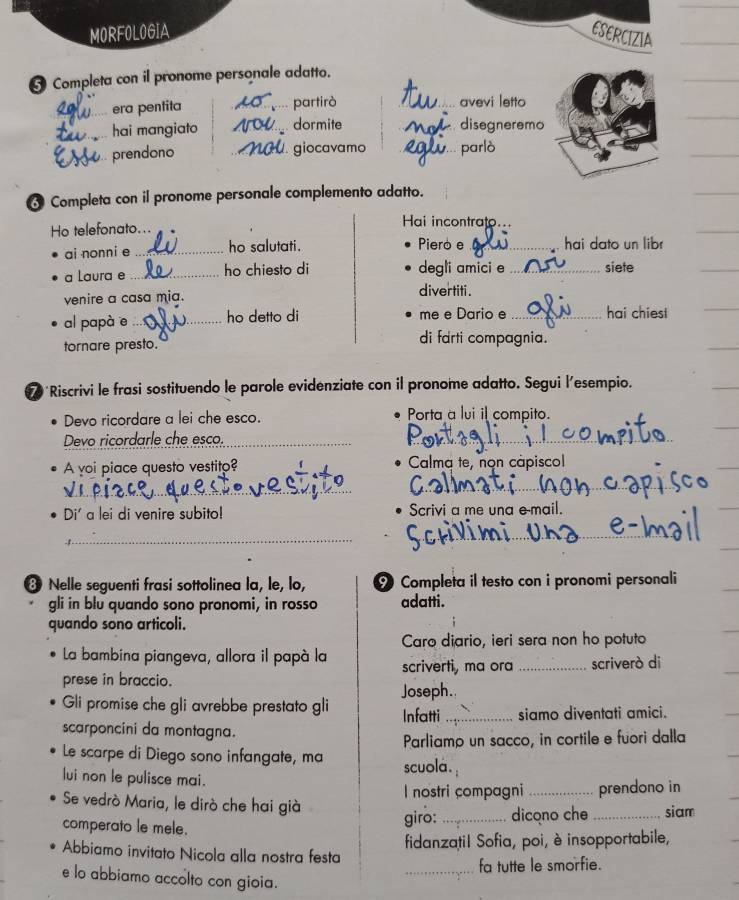 MORFOLOGIA
ESERCIZIA
5 Completa con il pronome personale adatto.
egli era pentita
io partirò
tu avevi letto
tu hai mangiato
voi dormite
noi disegneremo
Esse prendono
noi giocavamo
egli parlò
6 Completa con il pronome personale complemento adatto.
Ho telefonato...
• ai nonni e li ho salutati.
• a Laura e le ho chiesto di
venire a casa mia.
• al papà e gli ho detto di
tornare presto.
Hai incontrato...
• Piero e gli hai dato un libr
• degli amici e vi siete
divertiti.
• me e Dario e gli hai chiest
di farti compagnia.
7 Riscrivi le frasi sostituendo le parole evidenziate con il pronome adatto. Segui l'esempio.
• Devo ricordare a lei che esco.
Devo ricordarle che esco.
• A voi piace questo vestito?
Vi piace questo vestito
• Di' a lei di venire subito!
• Porta a lui il compito.
Portagli il compito
• Calma te, non capisco!
Callmati non capisco
• Scrivi a me una e-mail.
Scrivimi una e-mail
8 Nelle seguenti frasi sottolinea la, le, lo,
gli in blu quando sono pronomi, in rosso
quando sono articoli.
• La bambina piangeva, allora il papà la
prese in braccio.
• Gli promise che gli avrebbe prestato gli
scarponcini da montagna.
• Le scarpe di Diego sono infangate, ma
lui non le pulisce mai.
• Se vedrò Maria, le dirò che hai già
comperato le mele.
• Abbiamo invitato Nicola alla nostra festa
e lo abbiamo accolto con gioia.
9 Completa il testo con i pronomi personali
adatti.
Caro diario, ieri sera non ho potuto
scriverti, ma ora ............ scriverò di
Joseph.
Infatti ............ siamo diventati amici.
Parliamo un sacco, in cortile e fuori dalla
scuola.
I nostri compagni ............ prendono in
giro: ............ dicono che ............ siam
fidanzati! Sofia, poi, è insopportabile,
............ fa tutte le smorfie.